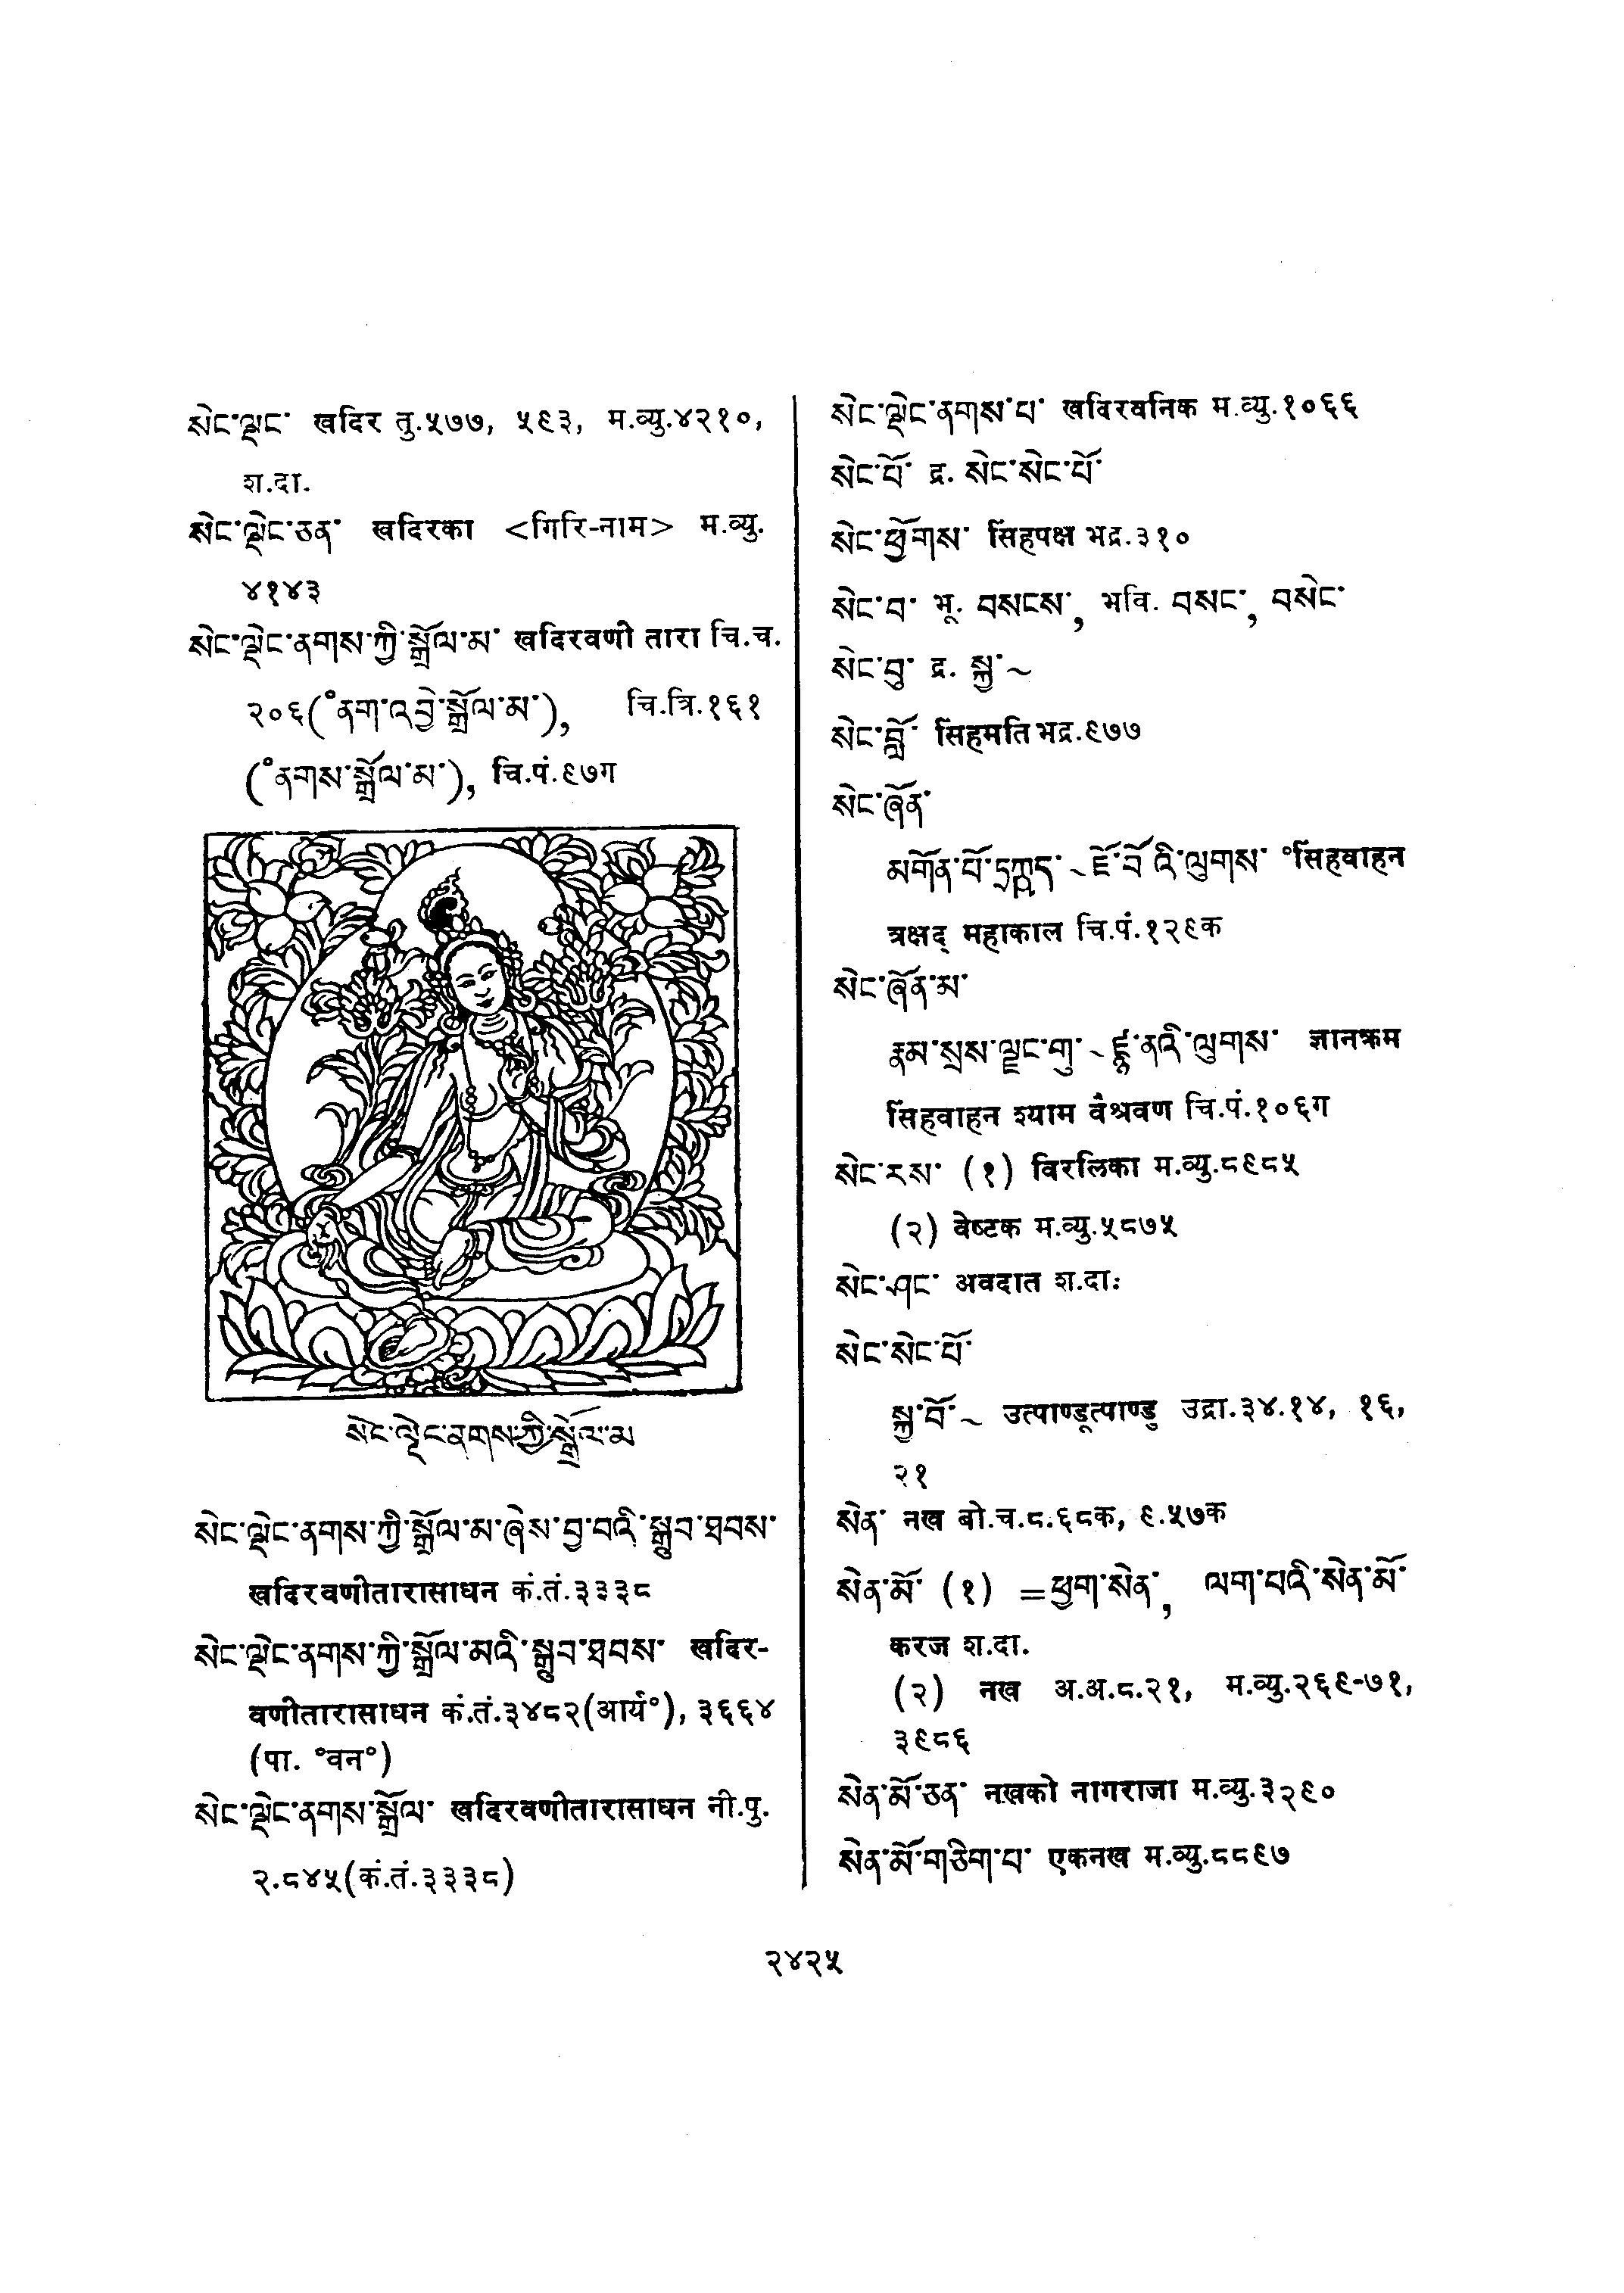 སེང་ལྡང་ खदिर तु.५७७, ५९३, म.व्यु.४२१०,
श.दा.
སེང་ལྡེང་ཅན་ खदिरका <गिरि-नाम> म.व्यु.
४१४३
སེང་ལྡེང་ནགས་ཀྱི་སྒྲོལ་མ་ खदिरवणी तारा चि.च.
२०६(°ནག་འབྱེ་སྒྲོལ་མ་), चि.त्रि.१६१
(°ནགས་སྒྲོལ་མ་), चि.पं.९७ग
སེང་ལྡེང་ནགས་ཀྱི་སྒྲོལ་མ
སེང་ལྡེང་ནགས་ཀྱི་སྒྲོལ་མ་ཞེས་བྱ་བའི་སྒྲུབ་ཐབས་
खदिरवणीतारासाधन कं.तं.३३३८
སེང་ལྡེང་ནགས་ཀྱི་སྒྲོལ་མའི་སྒྲུབ་ཐབས་ खदिर-
वणीतारासाधन कं.तं.३४८२(आर्य°), ३६६४
(पा. °वन°)
སེང་ལྡེང་ནགས་སྒྲོལ་ खदिरवणीतारासाधन नी.पु.
२.८४५(कं.तं.३३३८)
སེང་ལྡེང་ནགས་པ་ खदिरवनिक म.व्यु.१०६६
སེང་པོ་ द्र. སེང་སེང་པོ་
སེང་ཕྱོགས་ सिंहपक्ष भद्र.३१०
སེང་བ་ भू. བསངས་, भवि. བསང་, བསེང་
སེང་བུ་ द्र. སྐྱ་~
སེང་བློ་ सिंहमति भद्र.९७७
སེང་ཞོན་
མགོན་པོ་ཏྲཀྵད་~ཇོ་བོ་འི་ལུགས་ °सिंहवाहन
त्रक्षद् महाकाल चि.पं.१२९क
སེང་ཞོན་མ་
རྣམ་སྲས་ལྗང་གུ་~ཛྙ་ནའི་ལུགས་ ज्ञानक्रम
सिंहवाहन श्याम वैश्रवण चि.पं.१०६ग
སེང་རས་ (१) विरलिका म.व्यु.८९८५
(२) वेष्टक म.व्यु.५८७५
སེང་ཤང་ अवदात श.दा:
སེང་སེང་པོ་
སྐྱ་བོ་~ उत्पाण्डूत्पाण्डु उद्रा.३४.१४, १६,
२१
སེན་ नख बो.च.८.६८क, ९.५७क
སེན་མོ་ (१) =ཕྱག་སེན་, ལག་པའི་སེན་མོ་
करज श.दा.
(२) नख अ.अ.८.२१, म.व्यु.२६९-७१,
३९८६
སེན་མོ་ཅན་ नखको नागराजा म.व्यु.३२९०
སེན་མོ་གཅིག་པ་ एकनख म.व्यु.८८९७
२४२५